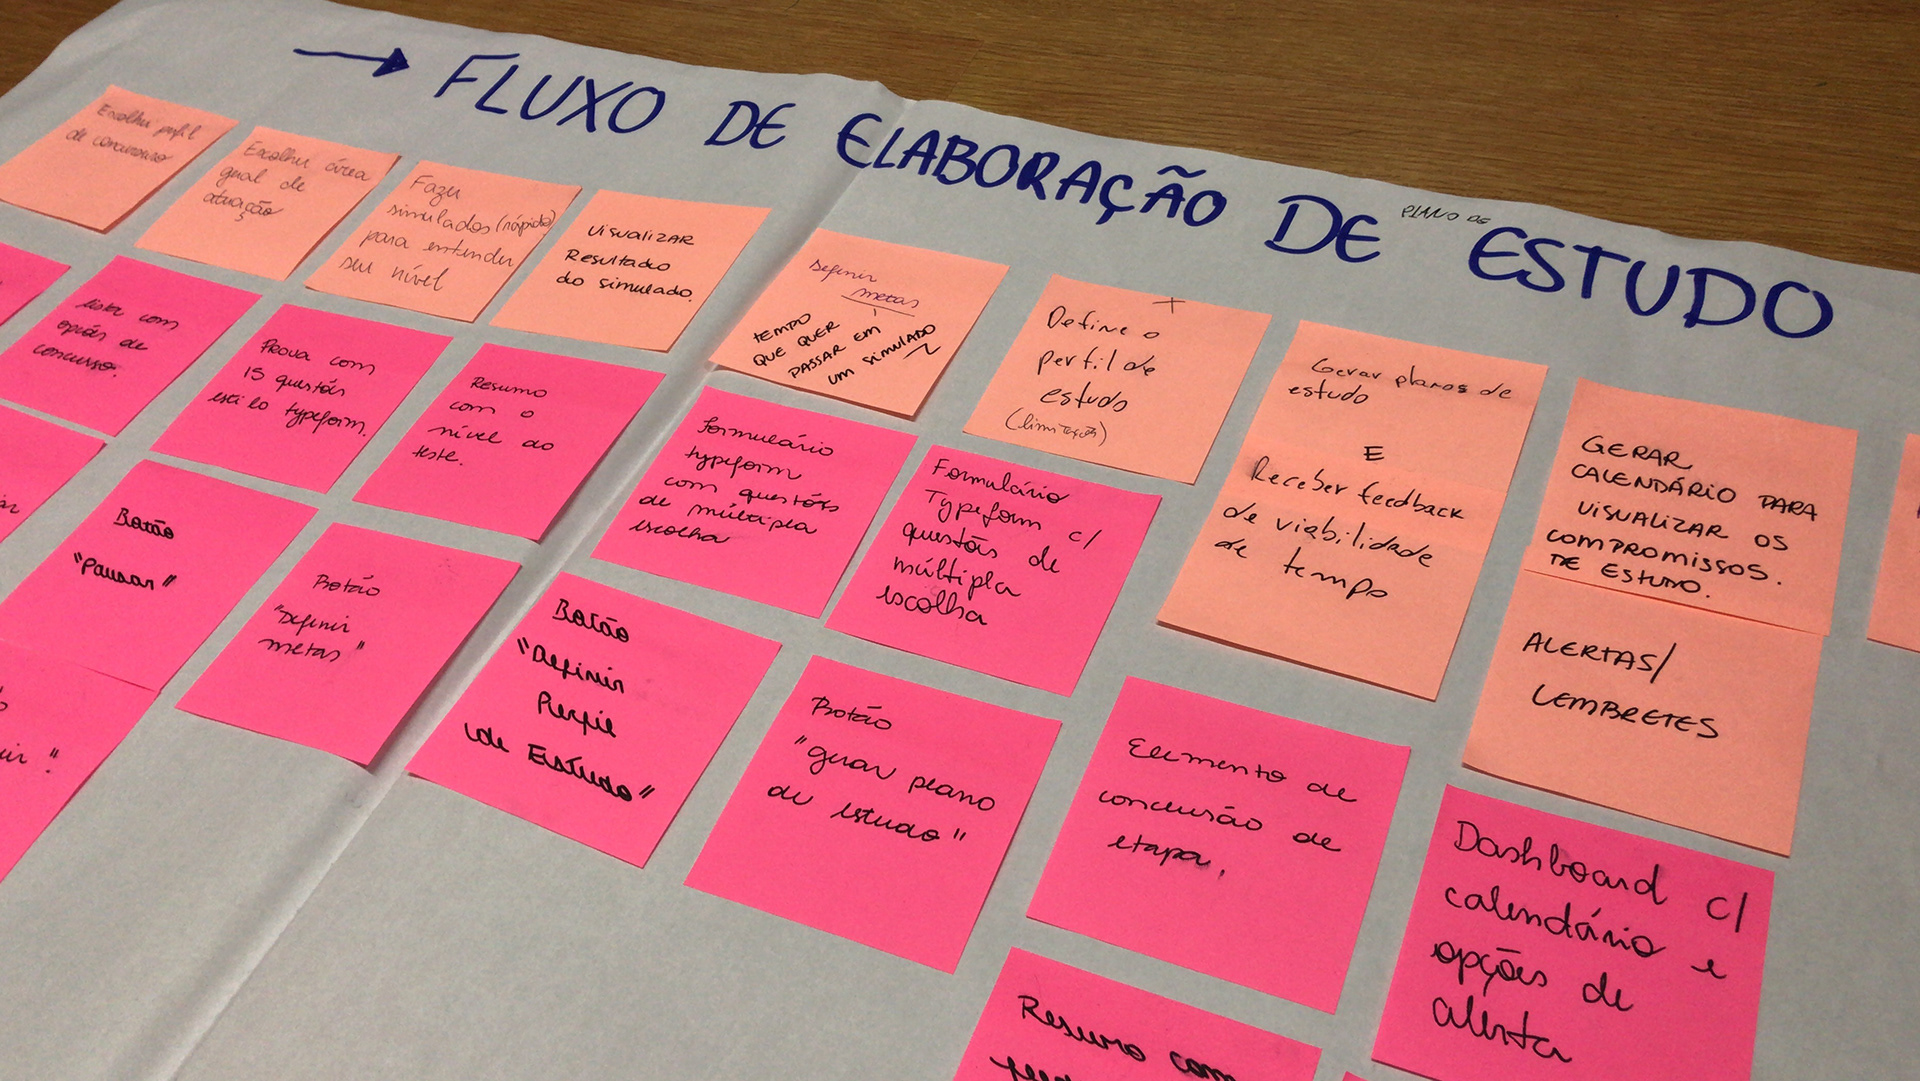 FLUXO DE ELABORAÇÃO DE PLANO DE ESTUDO
Escolher perfil
de concurso
Escolher área
geral de
atuação
Fazer
simulados (rápido)
para entender
seu nível
VISUALIZAR
Resultado
do simulado.
Definir
metas
TEMPO
QUE QUER
PASSAR EM
UM SIMULADO
Define o
perfil de
estudo
(limitações)
Gerar planos de
estudo
E
Receber feedback
de viabilidade
de tempo
GERAR
CALENDÁRIO PARA
VISUALIZAR OS
COMPROMISSOS.
DE ESTUDO.
ALERTAS/
LEMBRETES
lista com
opções de
concurso.
Prova com
15 questões
estilo typeform.
Resumo
com o
nível do
teste.
formulário
typeform
com questões
de múltipla
escolha
Formulário
Typeform c/
questões de
múltipla
escolha
Botão
"Pausar"
Botão
"Definir
metas"
Botão
"Definir
Perfil
de Estudo"
Botão
"gerar plano
de estudo"
Elemento de
conclusão de
etapa.
Dashboard c/
calendário e
opções de
alerta
Resumo com